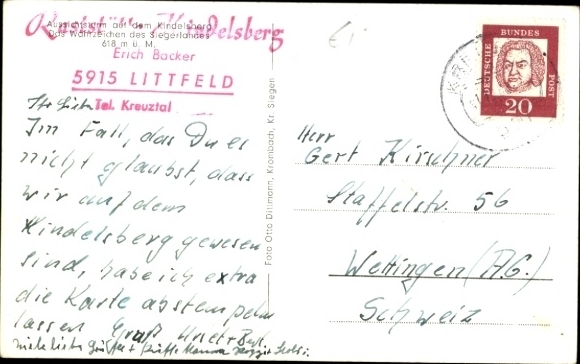 Aussichtsturm auf dem Kindelsberg
Das Wahrzeichen des Siegerlandes
618 m ü. M.
Raststätte Kindelsberg
Erich Backer
5915 LITTFELD
Tel. Kreuztal
Im Fall, das Du es
nicht glaubst, dass
wir auf dem
Kindelsberg gewesen
sind, habe ich extra
die Karte abstempeln
lassen Gruß
Foto Otto Dittmann, Krombach, Kr. Siegen
DEUTSCHE BUNDES POST
20
Herr
Gert Kirschner
Staffelstr. 56
Wettingen (AG.)
Schweiz